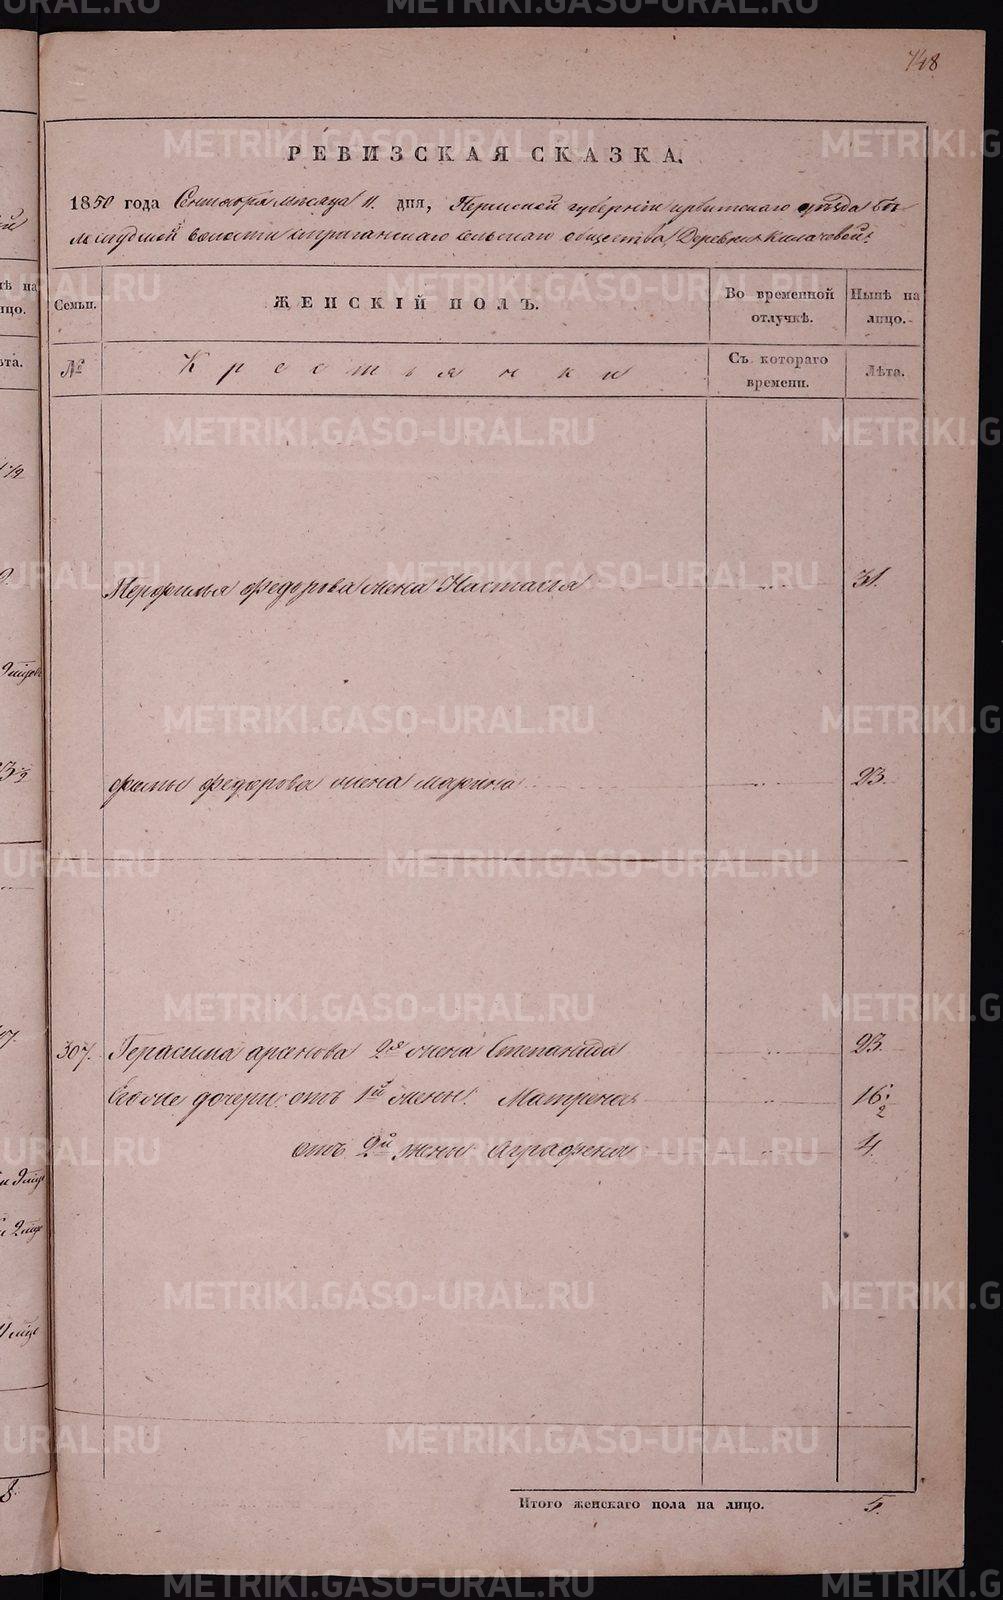 748
РЕВИЗСКАЯ СКАЗКА.
1850 года Сентября месяца 11 дня, Пермской губернии Ирбитскаго уѣзда Бѣ
лослудской волости стриганскаго сельскаго общества Деревни Килачевой:
Семьи. ЖЕНСКІЙ ПОЛЪ. Во временной отлучкѣ. Нынѣ на лицо.
№ Крестьянки Съ котораго времени. Лѣта.
Перфилья Федорова жена Настасья 31.
Филипы Федорова жена Марина 23.
307. Герасима 2я жена Степанида 23.
Егоже дочери: отъ 1й жены: Матрена 16 1/2
отъ 2й жены Аграфена 4.
Итого женскаго пола на лицо. 5.
METRIKI.GASO-URAL.RU